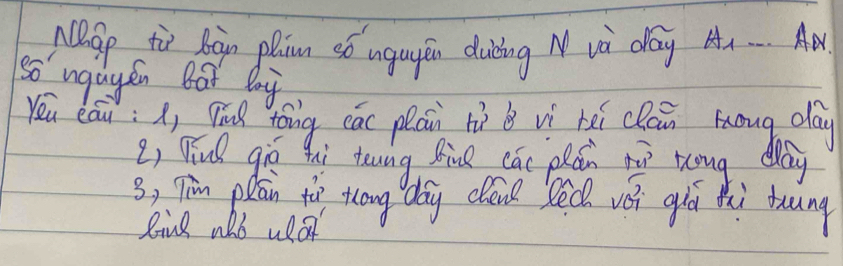 Nhập từ bàn phím số nguyên dương N và dãy A1 --- AN.
số nguyên bất kỳ
Yêu cầu : 1, Tính tổng các phần tử ở vị trí chẵn trong dãy
2, Tính giá trị trung bình các phần tử trong dãy
3, Tìm phần tử trong dãy chênh lệch với giá trị trung
bình nhỏ nhất